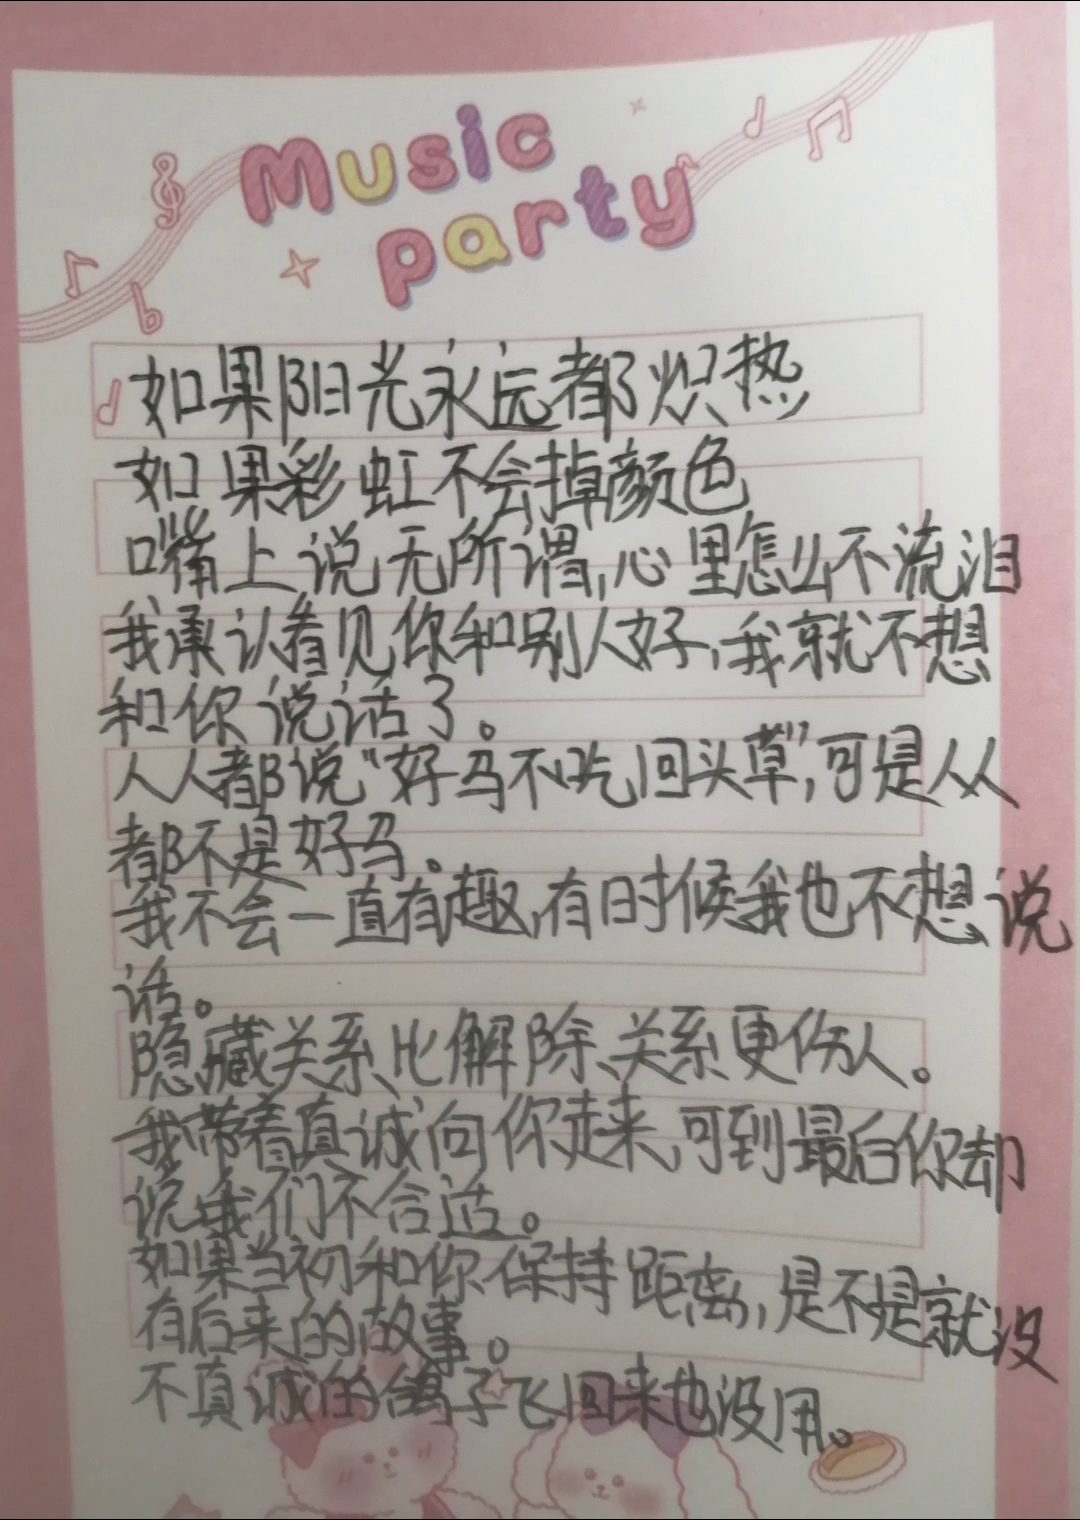 Music
party
如果阳光永远都炽热
如果彩虹不会掉颜色
嘴上说无所谓,心里怎么不流泪
我承认看见你和别人好,我就不想
和你说话了。
人人都说“好马不吃回头草”,可是人人
都不是好马。
我不会一直有趣,有时候我也不想说
话。
隐藏关系比解除关系更伤人。
我带着真诚向你走来,可到最后你却
说我们不合适。
如果当初和你保持距离,是不是就没
有后来的故事。
不真诚的鸽子飞回来也没用。